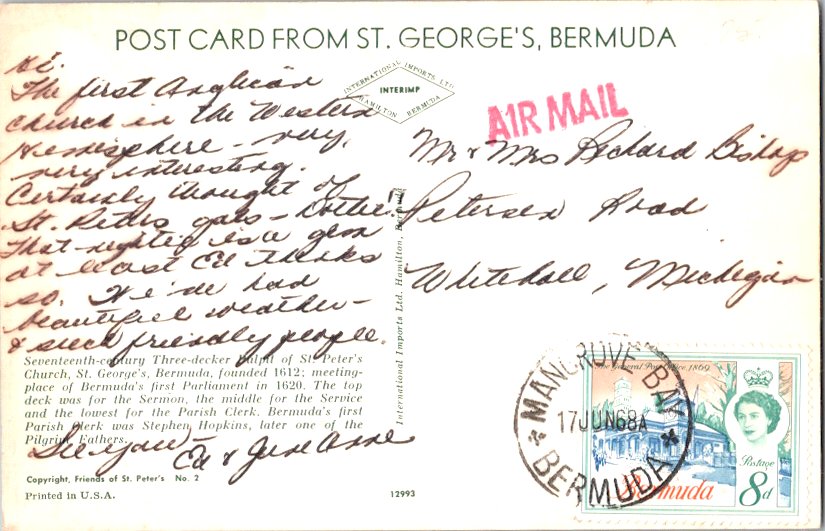 POST CARD FROM ST. GEORGE'S, BERMUDA
Hi.
The first Anglican
church in the Western
Hemisphere - very,
very interesting.
Certainly thought of
St. Peters gals - Dottie!!
That nightie is a gem
at least Ed thinks
so. We've had
beautiful weather -
& such friendly people.
See you -
Ed & June Anne
INTERNATIONAL IMPORTS LTD.
INTERIMP
HAMILTON BERMUDA
AIR MAIL
Mr & Mrs Richard Bishop
Petersen Road
Whitehall, Michigan
International Imports Ltd. Hamilton, Bermuda
Seventeenth-century Three-decker Pulpit of St. Peter's
Church, St. George's, Bermuda, founded 1612; meeting-
place of Bermuda's first Parliament in 1620. The top
deck was for the Sermon, the middle for the Service
and the lowest for the Parish Clerk. Bermuda's first
Parish Clerk was Stephen Hopkins, later one of the
Pilgrim Fathers.
Copyright, Friends of St. Peter's No. 2
Printed in U.S.A.
12993
MANGROVE BAY
17 JUN 68 A
BERMUDA
The General Post Office, 1869
Postage
Bermuda
8d